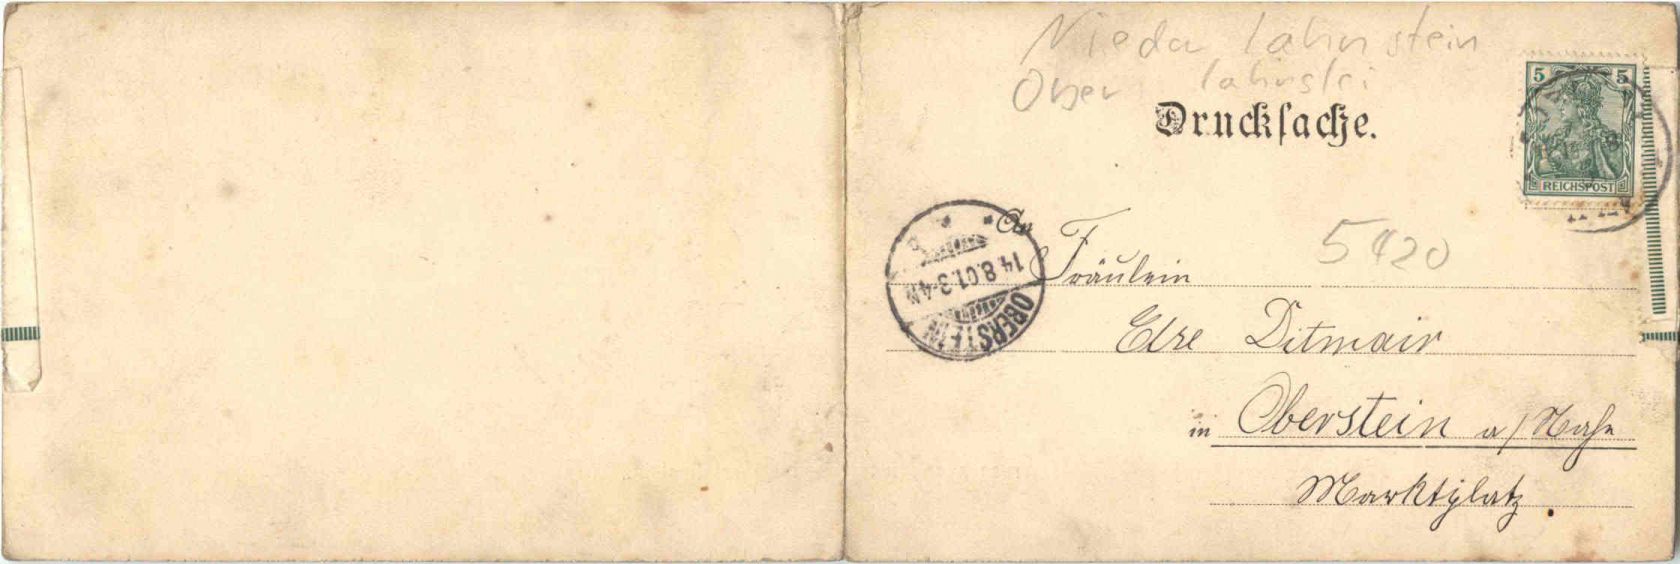 Nieda lahnstein
Ober lahnstei
Drucksache.
5 5
REICHSPOST
An
Fräulein
14.8.01.3-4N
OBERSTEIN
5420
Else Ditmair
in Oberstein a/Nahe
Marktplatz.